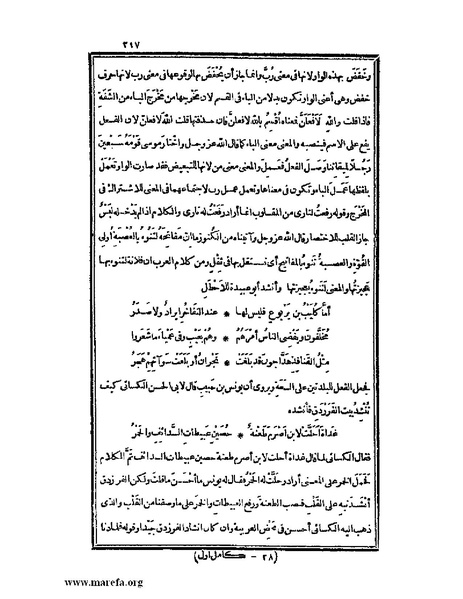 ٢١٧
وخفض بهذه الواو لانها فى معنى رب وانما جاز أن يخفض بها لوقوعها فى معنى رب لانها حرف
خفض وهى أعنى الواو تكون بدلا من الباء فى القسم لان مخرجها من مخرج الباء من الشفة
فاذا قلت والله لأفعلن فمعناه أقسم بالله لافعلن فان حذفتها قلت الله لافعلن لان الفعل
يقع على الاسم فينصبه والمعنى معنى الباء كما قال الله عز وجل واختار موسى قومه سبعين
رجلا لميقاتنا وصل الفعل فعمل والمعنى معنى من لانها للتبعيض فقد صارت الواو تعمل
بلفظها عمل الباء وتكون فى معناها وتعمل عمل رب لاجتماعهما فى المعنى للاشتراك فى
المخرج وقوله رفعت لنارى من المقلوب انما أراد رفعت له نارى والكلام اذا لم يدخله لبس
جاز القلب للاختصار قال الله عز وجل وآتيناه من الكنوز ما ان مفاتحه لتنوء بالعصبة أولى
القوة والعصبة تنوء بالمفاتيح أى تستقل بها فى ثقل ومن كلام العرب ان فلانة لتنوء بها
عجيزتها والمعنى لتنوء بعجيزتها وأنشد أبو عبيدة للاخطل
أما كليب بن يربوع فليس لها * عند التفاخر ايراد ولا صدر
مخلفون ويقضى الناس أمرهم * وهم بغيب وفى عمياء ما شعروا
مثل القنافذ هداجون قد بلغت * نجران أو بلغت سوآتهم هجر
فجعل الفعل للبلدتين على السعة ويروى أن يونس بن حبيب قال لابى الحسن الكسائى كيف
تنشد بيت الفرزدق فأنشده
غداة أحلت لابن أصرم طعنة * حصين عبيطات السدائف والخمر
فقال الكسائى لما قال غداة أحلت لابن أصرم طعنة حصين عبيطات السدائف تم الكلام
فحمل الخمر على المعنى أراد وحلت له الخمر فقال له يونس ما أحسن ما قلت ولكن الفرزدق
أنشدنيه على القلب فنصب الطعنة ورفع العبيطات والخمر على ما وصفنا من القلب والذى
ذهب اليه الكسائى أحسن فى محض العربية وان كان انشاد الفرزدق جيدا وقوله فلما دنا
(٢٨ - كامل اول)
www.marefa.org